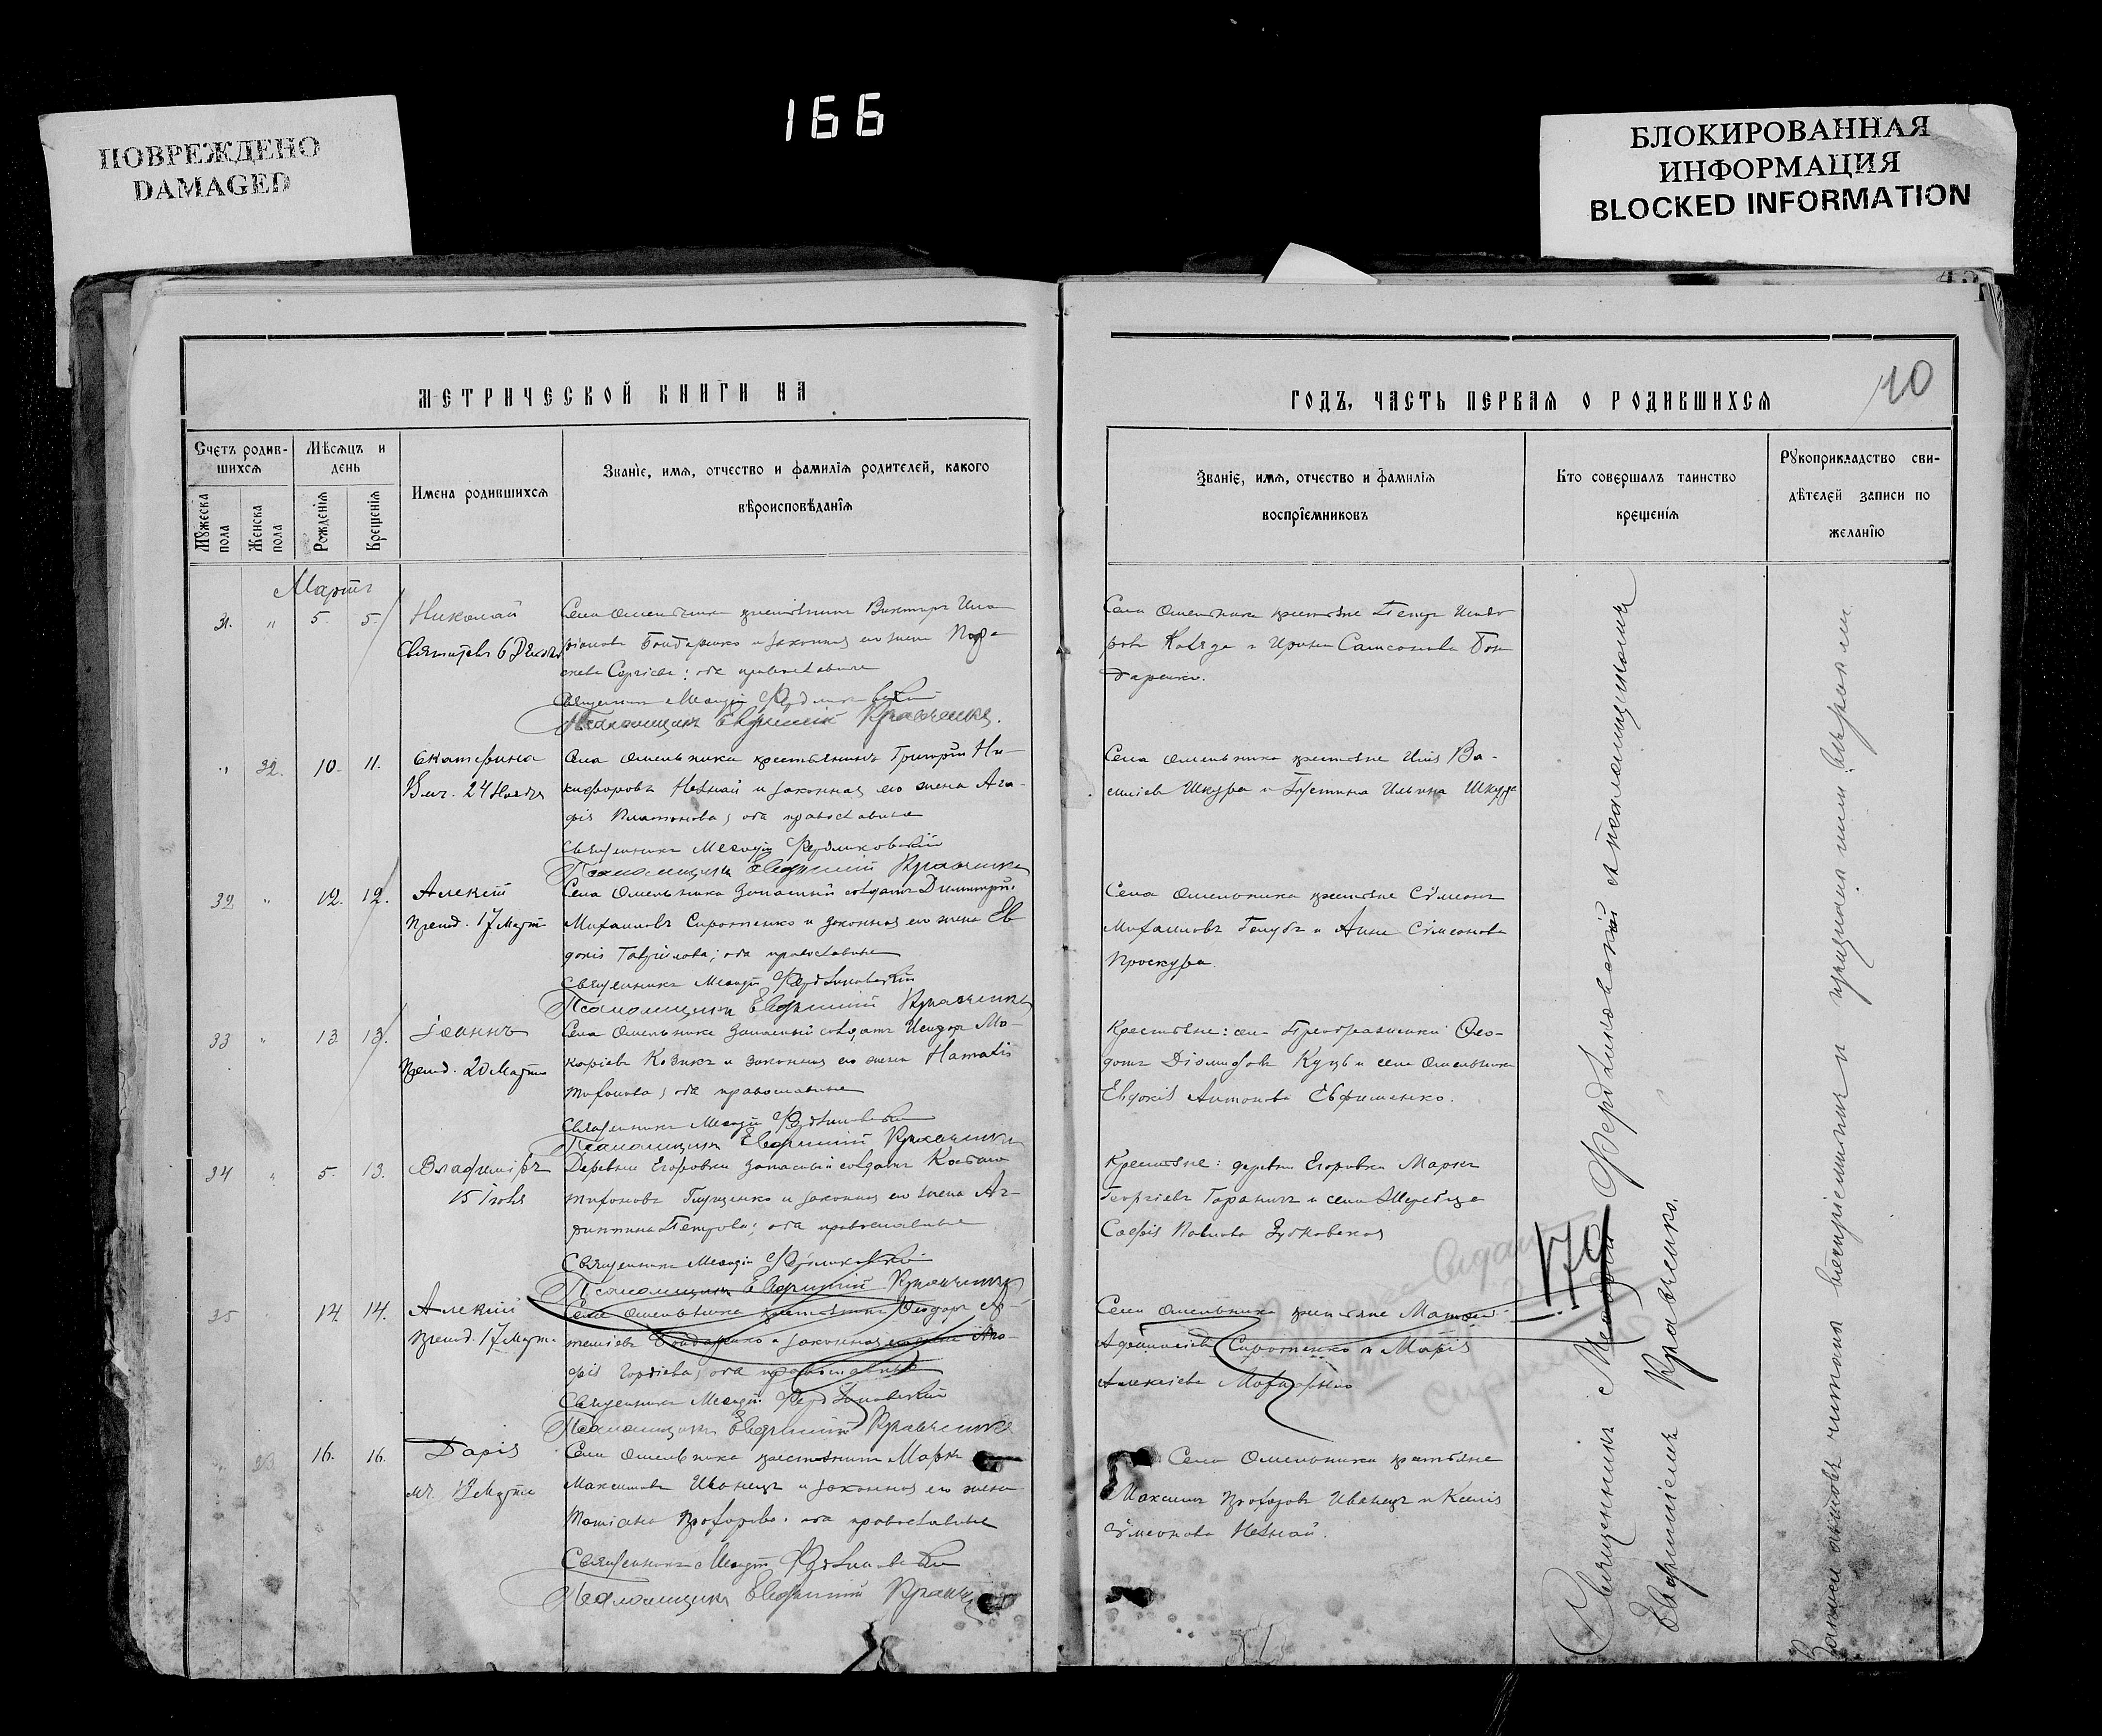 166
ПОВРЕЖДЕНО
DAMAGED
БЛОКИРОВАННАЯ
ИНФОРМАЦИЯ
BLOCKED INFORMATION
МЕТРИЧЕСКОЙ КНИГИ НА
Счетъ родив-
шихся
Мѣсяцъ и
день
Мужеска
пола
Женска
пола
Рожденія
Крещенія
Имена родившихся
Званіе, имя, отчество и фамилія родителей, какого
вѣроисповѣданія
Мартъ
31. " 5. 5. Николай
Села Омельника крестьянинъ Викторъ
Бондаренко и законная его жена
Сергіева; оба православные
Священникъ Мелодій Фердинаковскій
Псаломщикъ Евфимій Кравченко.
" 32. 10. 11. Екатерина
Влмч. 24 Ноября
Села Омельника крестьянинъ Григорій Ни-
кифоровъ Нехай и законная его жена Ага-
фія Платонова; оба православные
Священникъ Мелодій Фердинаковскій
Псаломщикъ Евфимій Кравченко
32 " 12. 12. Алексій
Препод. 17 Марта
Села Омельника запасный солдатъ Димитрій
Михаиловъ Сиротенко и законная его жена Ев
докія Гавріилова; оба православные
Священникъ Мелодій Фердинаковскій
Псаломщикъ Евфимій Кравченко
33 " 13 13. Іоаннъ
Препод. 20 Марта
Села Омельника запасный солдатъ Исидоръ Ма-
каріевъ Козикъ и законная его жена Наталія
Тихонова; оба православные
Священникъ Мелодій Фердинаковскій
Псаломщикъ Евфимій Кравченко
34 " 5. 13. Владиміръ
15 Іюля
Деревни Егоровки запасный солдатъ
Тихоновъ Глущенко и законная его жена
Петрова; оба православные
Священникъ Мелодій Фердинаковскій
Псаломщикъ Евфимій Кравченко
35 14. 14. Алексій
Препод. 17 Марта
Села Омельника крестьянинъ Феодоръ Ар-
теміевъ Бондаренко и законная его жена Ага-
фія Гордіева; оба православные
Священникъ Мелодій Фердинаковскій
Псаломщикъ Евфимій Кравченко
16. 16. Дарія
мч. 19 Марта
Села Омельника крестьянинъ Маркъ
Максимовъ Иванецъ и законная его жена
Татіана Прохорова. оба православные
Священникъ Мелодій Фердинаковскій
Псаломщикъ Евфимій
ГОДЪ, ЧАСТЬ ПЕРВАЯ О РОДИВШИХСЯ
10
Званіе, имя, отчество и фамилія
воспріемниковъ
Кто совершалъ таинство
крещенія
Рукоприкладство сви-
дѣтелей записи по
желанію
Села Омельника крестьяне Петръ Исидо
ровъ Коляда и Ирина Самсонова Бон
даренко.
Села Омельника крестьяне Илія Ва-
силіевъ Шкура и Іустина Ильина Шкура
Села Омельника крестьяне Сѵмеонъ
Михаиловъ Голубъ и Анна Сѵмеонова
Проскура.
Крестьяне: села Преображенки Фео-
дотъ Діомидовъ Куцъ и села Омельника
Евдокія Антонова Евфименко.
Крестьяне: деревни Егоровки Маркъ
Георгіевъ Гаранинъ и села Жеребца
Софія Павлова Зубковская
Села Омельника крестьяне
Афанасіевъ Сиротенко и Марія
Алексіева
Села Омельника крестьяне
Максимъ Прохоровъ Иванецъ и Ксенія
Сѵмеонова Нехай.
170
Священникъ Мелодій Фердинаковскій съ псаломщикомъ
Евфиміемъ Кравченко.